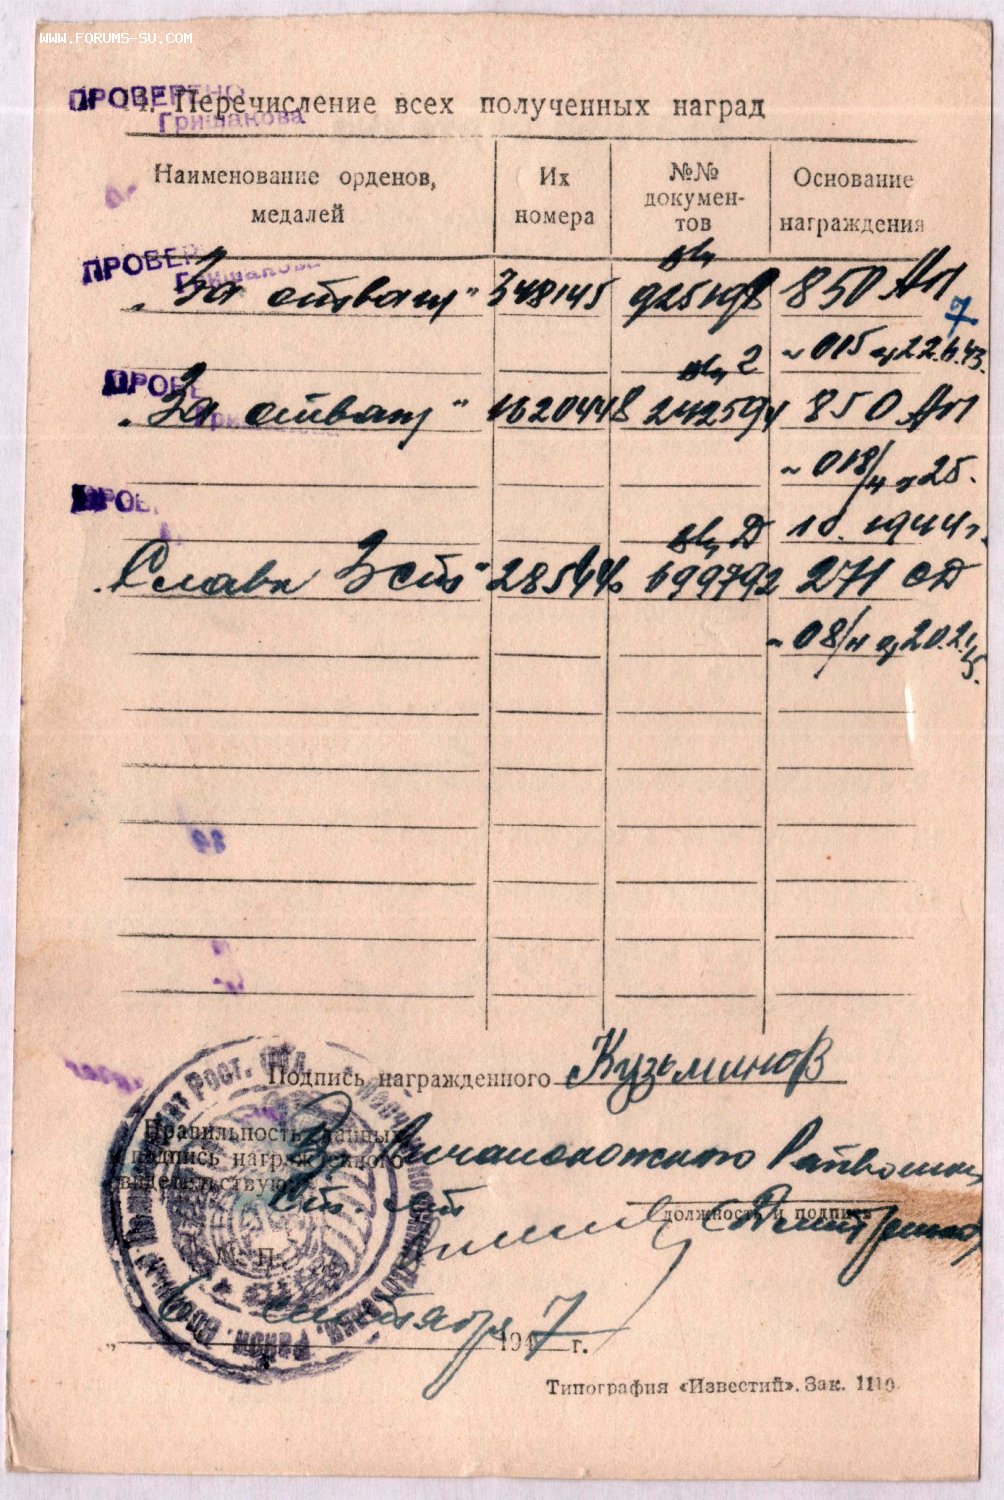 WWW.FORUMS-SU.COM
ПРОВЕРЕНО
Гришакова
4. Перечисление всех полученных наград
Наименование орденов, медалей
Их номера
№№ документов
Основание награждения
ПРОВЕР
Гришакова
„За отвагу" 348145 925198 850 АП
7
~ 015 22.6.43.
ПРОВЕ
2
„За отвагу" 1620448 242594 850 АП
~ 018/н 25.
ПРОВЕ
10. 1944г.
Д
„Слава 3 ст" 285646 699792 271 СД
~ 08/н 20.2.45.
Подпись награжденного Кузьминов
Правильность данных
и подпись награжденного
свидетельствую:
должность и подпись
М. П.
сентября 1947 г.
Типография «Известий». Зак. 1110.